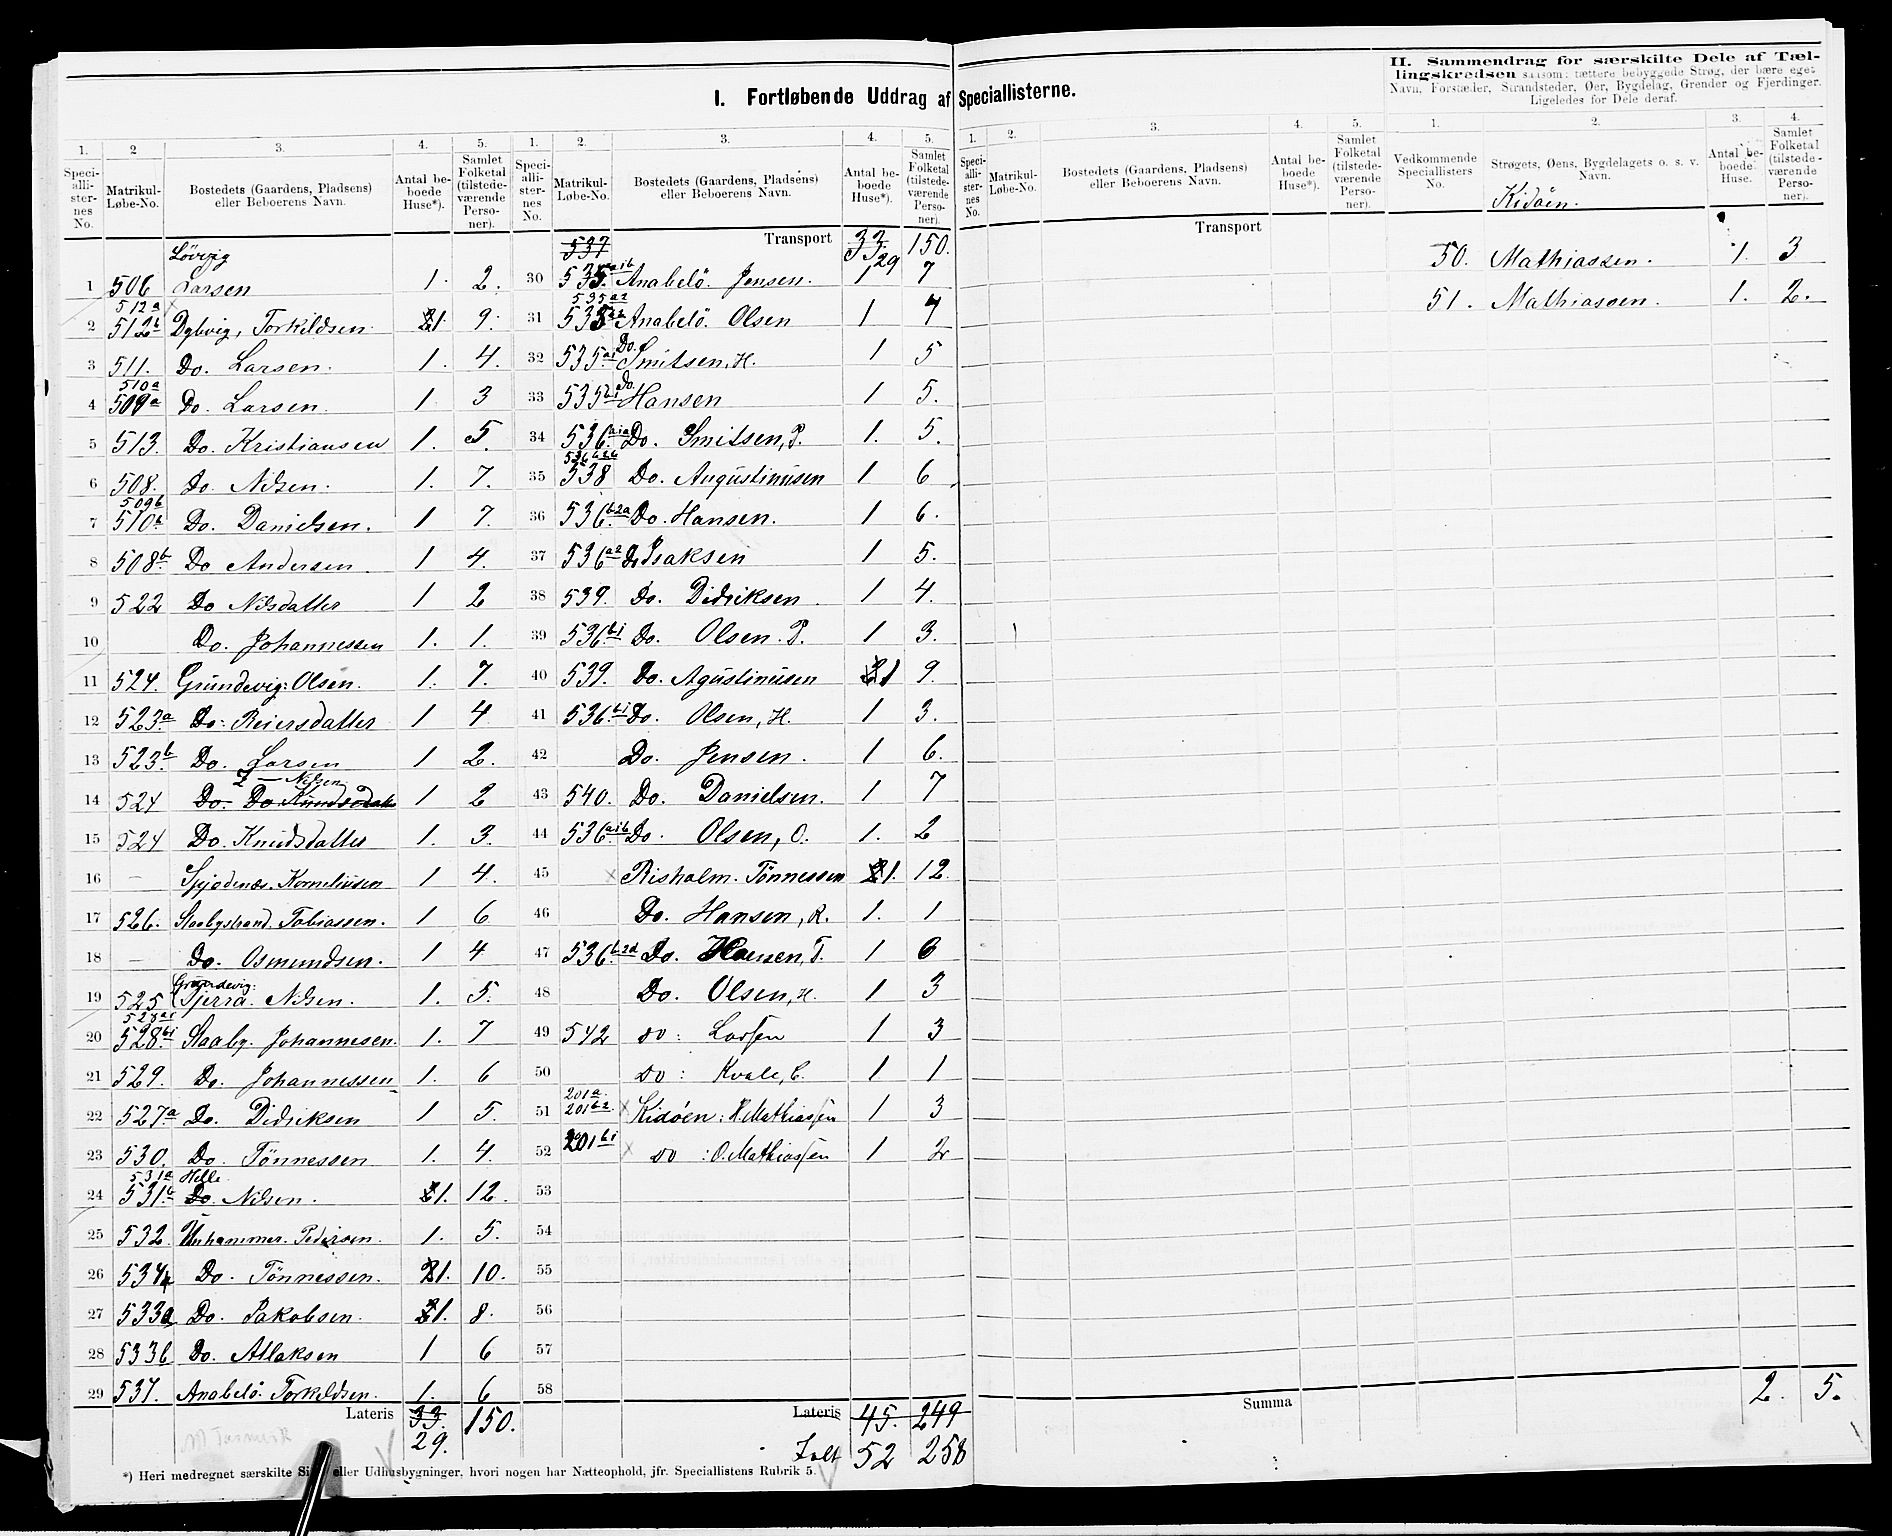 I. Fortløbende Uddrag af Speciallisterne.
II. Sammendrag for særskilte Dele af Tæl-
lingskredsen saasom: tættere bebyggede Strøg, der bære eget
Navn, Forstæder, Strandsteder, Øer, Bygdelag, Grender og Fjerdinger.
Ligeledes for Dele deraf.
1. 2 3. 4. 5. 1. 2. 3. 4. 5.
Speci-alli-ster-nes No. Matrikul-Løbe-No. Bostedets (Gaardens, Pladsens) eller Beboerens Navn. Antal be-boede Huse*). Samlet Folketal (tilstede-værende Perso-ner).
Speci-alli-ster-nes No. Matrikul-Løbe-No. Bostedets (Gaardens, Pladsens) eller Beboerens Navn. Antal be-boede Huse*). Samlet Folketal (tilstede-værende Perso-ner).
Løvvig
1 506 Larsen 1. 2.
2 512a 512b Dybvig, Torkildsen. 1. 9.
3 511. Do. Larsen. 1. 4.
4 510a 509a Do. Larsen. 1. 3
5 513. Do. Kristiansen 1. 5.
6 508. Do. Nilsen. 1. 7.
7 509b 510a Do. Danielsen. 1 7.
8 508b. Do Andersen. 1 4.
9 522 Do Nilsdatter 1 2
10 Do. Johannessen 1. 1.
11 524. Grundevig: Olsen. 1. 7.
12 523a. Do: Reiersdatter 1 4
13 523b. Do. Larsen 1 2.
14 524 Nilsen. 1 2
15 524 Do. Knudsdatter 1. 3.
16 — Kornelius­sen 1 4.
17 526. Staabystrand. Tobiassen. 1 6
18 — Do. Osmundsen. 1 4
Grundevig:
19 525 Tjerra. Nilsen. 1. 5.
20 528a1 528b1 Staaby. Johannesen. 1. 7
21 529. Do. Johannessen 1. 6
22 527a Do. Didriksen 1 5.
23 530. Do. Tönnessen 1. 4.
24 531a 531b. Helle Do. Nilsen. 1. 12.
25 532 Urhammer. Pedersen. 1. 5.
26 534 Do. Tönnessen. 1. 10.
27 533a Do. Jakobsen. 1. 8.
28 533b Do. Atlaksen 1 6
29 537. Anabelö. Torkildsen. 1. 6
Lateris 33. 150.
29.
537 Transport 33. 150.
29
30 535a1b Anabelö. Jensen. 1 7
31 535a2 Anabelö. Olsen 1 4
32 535a1 Do. Smitsen, H. 1 5
33 535b1 Do. Hansen 1 5.
34 536a1a Do. Smitsen, P. 1. 5.
35 536b2b 538 Do. Augustinusen 1 6
36 536b2a Do. Hansen. 1 6.
37 536a2 Do Isaksen 1 5.
38 539. Do. Didriksen. 1 4.
39 536b1 Do. Olsen. P. 1 3.
40 539. Do. Agustinusen 1 9.
41 536b1 Do. Olsen, H. 1 3.
42 Do. Jensen. 1 6.
43 540. Do. Danielsen. 1 7
44 536a1b Do. Olsen, O. 1. 2
45 Risholm. Tönnessen 1. 12.
46 Do. Hansen, R. 1. 1
47 536b2d Do. Hansen, T. 1 6
48 Do. Olsen, H. 1 3
49 542 do: Larsen 1 3
50 do: Kvale, C. 1 1
51 201a. 201b2 Kidöen: H. Mathiassen 1 3
52 201b1 do: O. Mathiassen 1 2
53
54
55
56
57
58
Lateris 45. 249
Ialt 52 258
*) Heri medregnet særskilte eller Udhusbygninger, hvori nogen har Natteophold, jfr. Speciallistens Rubrik 5.
1. 2. 3. 4. 5.
Speci-alli-ster-nes No. Matrikul-Løbe-No. Bostedets (Gaardens, Pladsens) eller Beboerens Navn. Antal be-boede Huse*). Samlet Folketal (tilstede-værende Perso-ner).
Transport
Summa
1. 2. 3. 4.
Vedkommende Speciallisters No. Strøgets, Øens, Bygdelagets o. s. v. Navn. Antal be-boede Huse. Samlet Folketal (tilstede-værende Perso-ner).
Kidöen.
50. Mathiassen. 1. 3
51. Mathiassen. 1. 2.
2. 5.